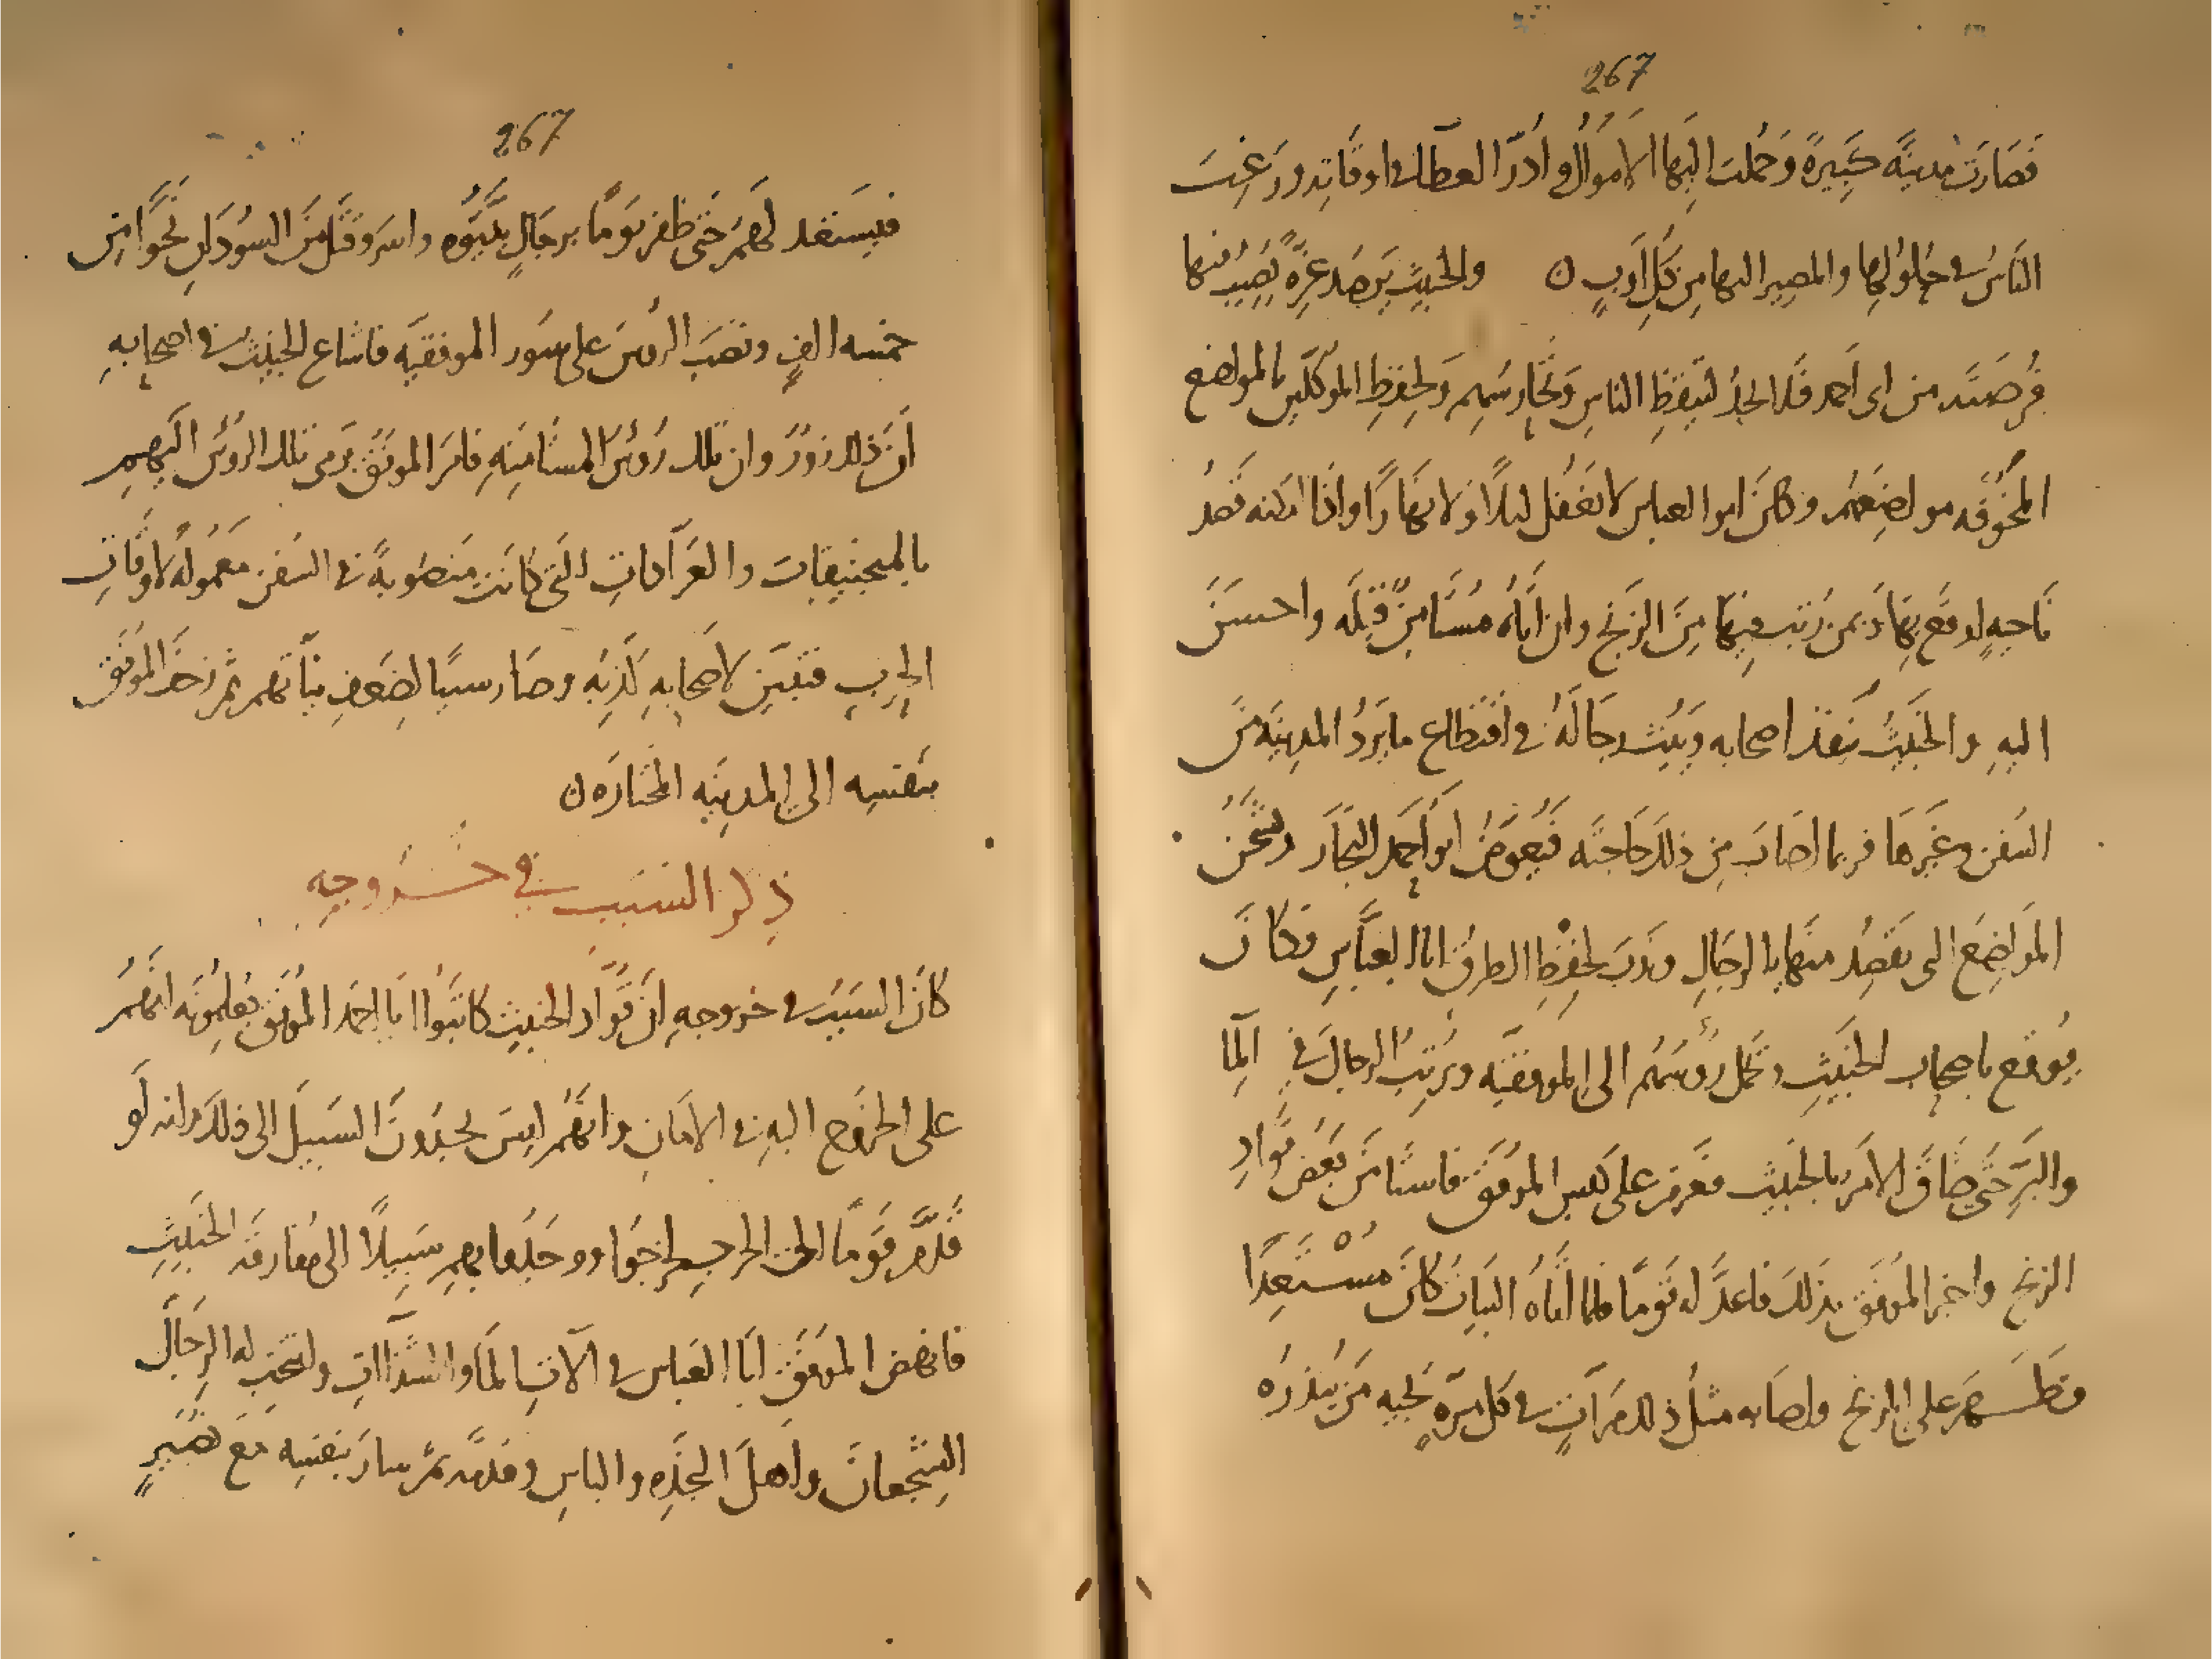 267
فصَارَت مدينَّه كَبِيرَةً وَحُملت اليَها الامَوَالُ وادُرّ العطَآ فى اوقَاتِه ورَغِبَ
الناسُ فى حُلُولِها والمصير اليها مِن كُلِّ اَوبٍ ن والخبيث يَرصُد غِرَّةً يُصِيبُ منها
فُرصَتَه من ابى اَحمد فلا يجدُ لتَيقظِ الناس وَتحَارسُهِم وَلحِفظِ الموكّلين بالمواضع
المخُوفَه مواضِعَهُم وكانَ ابو العباس لا يَغفُل ليلاً ولا نهَارًا واذا امكنه قَصدُ
نَاحيهٍ اوقع بهَا وَبمَن رُتبَ فيها مِنَ الزَنج وان اتَاهُ مُستَامِنٌ قَبِلَه واحسَنَ
اليهِ والخَبيثُ يَنفذ اصحابه وَيَبُثّ رجَالَهُ فى اقتطاع ما يَرَدُ المدينَهَ مِنَ
السُفن وغَيرهَا فربما اصَابَ مِن ذلكَ حَاجتَه فَيُعوضُ ابو اَحمَد التجَّارَ ويَشحَن
المَوَاضِعَ التى يَقصِدُ منهَا بالرجَالِ ونَدَبَ لحِفظِ الطرقُ ابا العبَّاسِ فكانَ
يُوقع باصحاب الخَبيثِ وتُحمَل رؤسُهُم الى الموفقيَه ويُرتِبُ الرجالَ فى المآ
والبَّرِ حَتى ضَاقَ الامَرُ بالخبيث فعَزم على كبس الموفَق فاستَامَنَ بعَضُ قوَّادِ
الزنج واخبر الموَفقَ بذَلكَ فاعدَّ له قَومًا فلما اَتَاهُ البيَاتُ كانَ مُسْتَعِدًا
فظَهَرَ على الزنج واصَابه مثلُ ذلك مَرّاتٍ فى كل مرَّةٍ يَجيه مَن يُنذرُه
267
فيَستعد لهَمُ حَتى ظفر يَومًا برجَالٍ بيَّتوُه واسر وقَتَل مِنَ السُودَانِ نحوًا مِن
خمسه الفٍ ونصَبَ الرؤسَ على سُور الموفقيَّه فاشاع الخبيثُ فى اصحابهِ
اَنّ ذلك زوُرٌ وان تلك رُؤسُ المستَامِنَهِ فامَر الموفَّقُ برَمى تلك الرؤسِ اليهِم
بالمِنجَنيقَات والعَرَّادَاتِ التى كانَت مَنصُوبَةً فى السُفن مَعمُولَةً لاوقَاتِ
الحرب فتبَين لاصحَابهِ كَذِبُه وصَار سببًا لضَعفِ نيّاتهم ثم زحَفَ الموفَّق
بنَفسِه الى المدينَه المختَارَه ن
ذِكر السَبَب فى خُروجِهِ
كانَ السَبَبُ فى خروجهِ اَنَّ قوَّادَ الخبيثِ كاتَبُوا ابا احمَد الموفَق يُعلِمُونَه انهَّمُ
على الخرُوج اليه فى الامَان وانهَّمُ ليسَ يَجدُونَ السَبيلَ الى ذلكَ وانه لَو
قَدَّمَ قَومًا الى الحرب لخرجُوا ووجَدُوا بهِم سَبِيلاً الى مُفَارقه الخَبيثِ
فانهض الموفقَُ ابَا العَباس فى الآتِ المآ والشذآاتِ وانتخَب له الرِجَالَ
الشِجعانَ واَهلَ النجدَه والباسِ وقدَّمه ثمَّ سارَ بنَفسِه مَعَ نُصَيرٍ